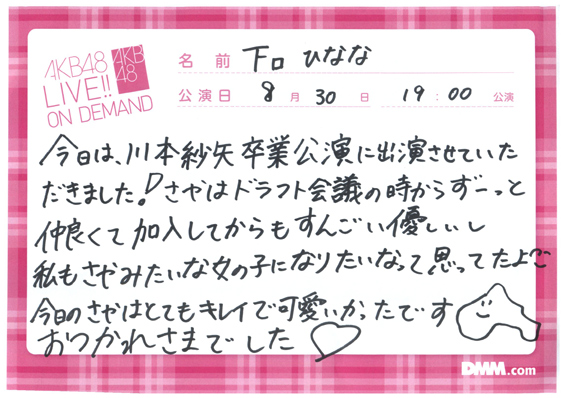 AKB48
LIVE!!
ON DEMAND
AKB
48
名前 下口 ひなな
公演日 8月30日 19:00公演
今日は、川本紗矢卒業公演に出演させていた
だきました！さやはドラフト会議の時からずーっと
仲良くて加入してからもすんごい優しいし
私もさやみたいな女の子になりたいなって思ってたよ
今日のさやはとてもキレイで可愛いかったです
おつかれさまでした♡
DMM.com